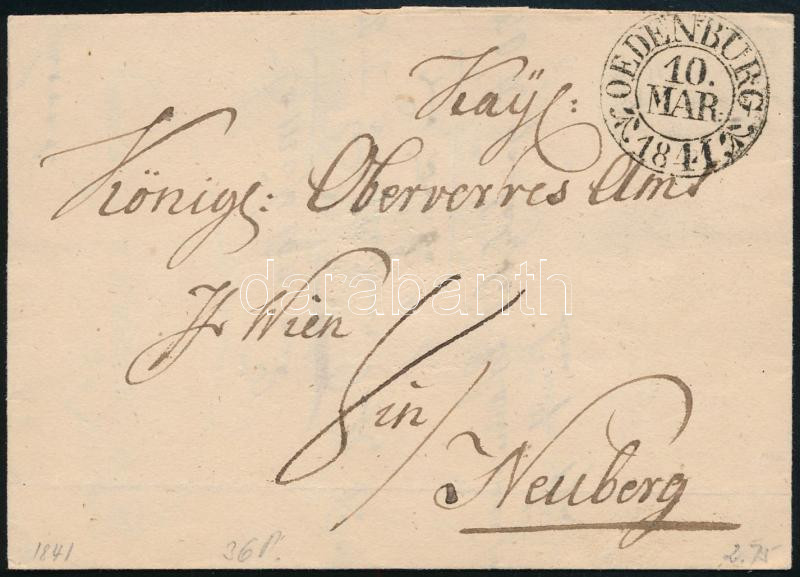 OEDENBURG
10.
MAR.
1841
Kaÿl:
Königl: Oberverwes Amt
Pr Wien
in
Neuberg
darabanth
1841
36 P.
2.75